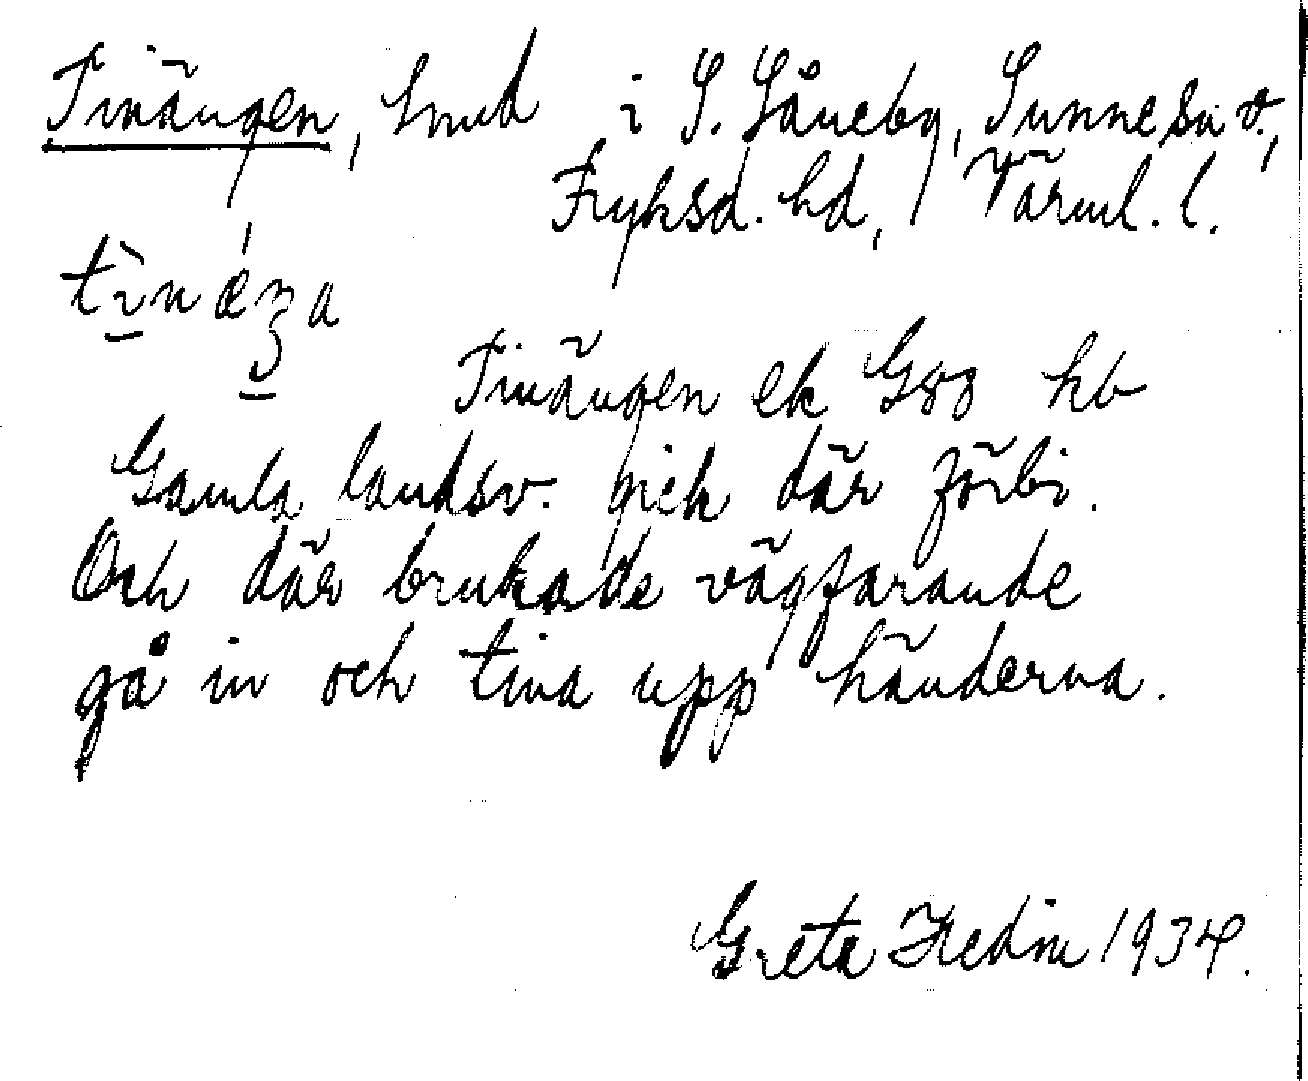 Tinängen, hmd i S. Såneby, Sunne sn v.,
Fryksd. hd, Värml. l.
Tinängen ek G88 hb
Gamla landsv. gick där förbi.
Och där brukade vägfarande
gå in och tina upp händerna.
Greta Hedin 1934.